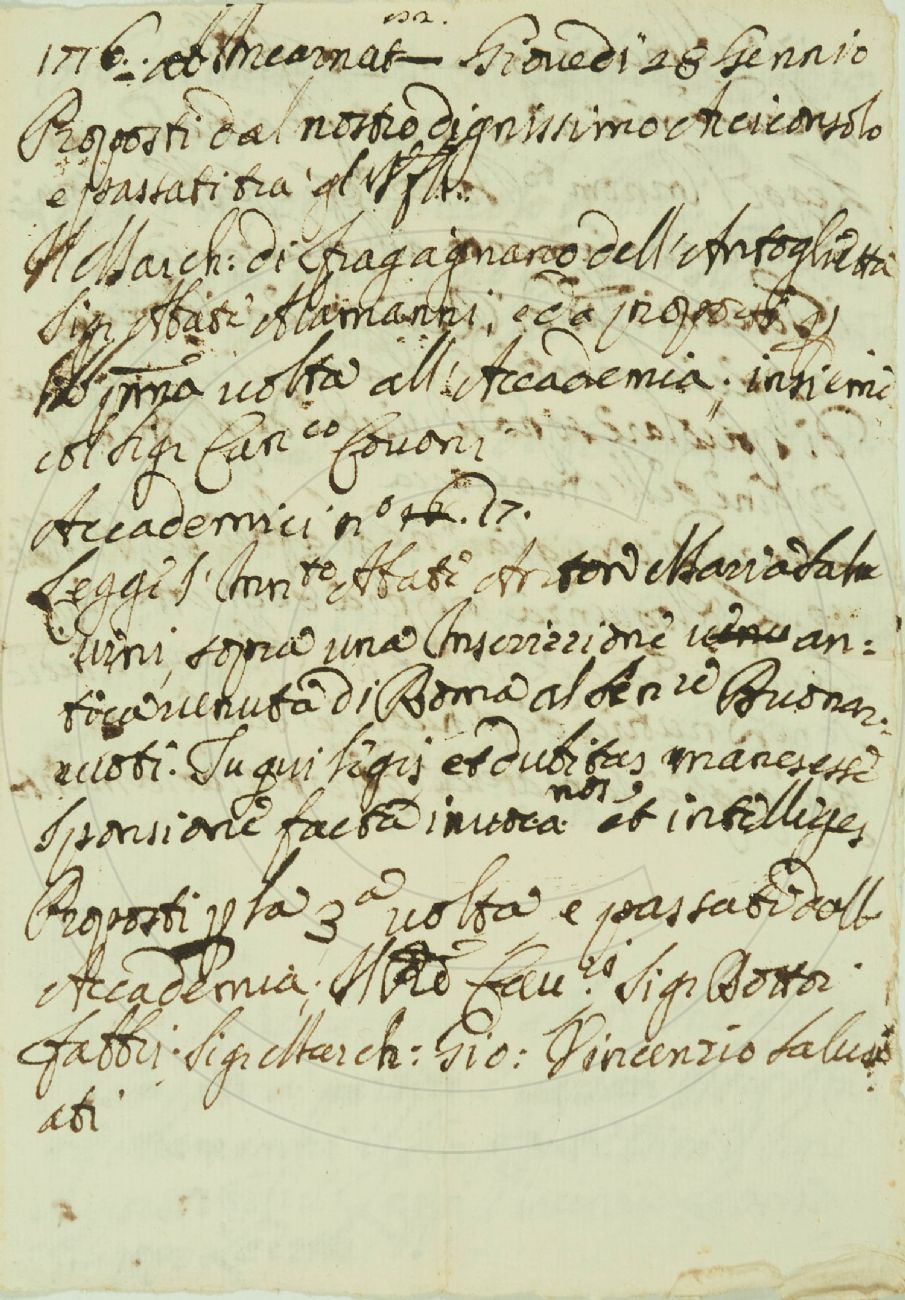 132.
1716. ab Incarnat— Giovedi 28 Gennio
Proposti dal nostro dignissimo Arciconsolo
e passati tra' gl'
Il March: di Fragagnano dell'Antoglietta
Sigr Abate Alamanni, e da proporsi p
la prima volta all'Accademia; insieme
col Sigr Canco Covoni
Accademici no 17.
Leggè l' Innto Abate Anton Maria Salu
vini, sopra una Inscrizzione an=
tica venuta di Roma al Senre Buonar=
ruoti. Tu qui legis et dubitas manes esse
Sponsione facta invoca nos, et intelliges
Proposti p la 3a volta e passati dall
Accademia; Il Cavre Sigr Bottoi
Fabbri. Sigr March: Gio: Vincenzio Salui
ati